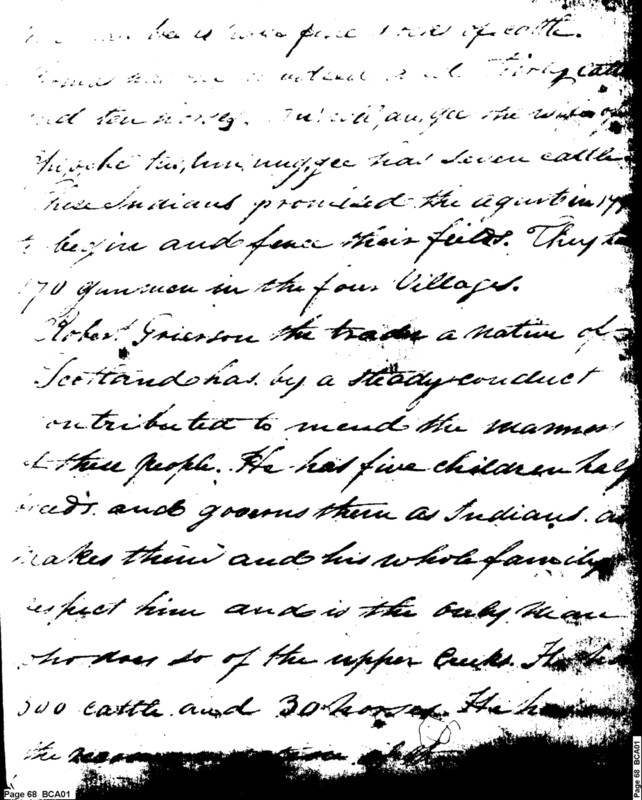 be is have fine stocks of cattle.
cattle
and ten horses. the wife of
has seven cattle
These Indians promised the agent in 17
to begin and fence their fields. They
170 gunmen in the four Villages.
Robert Grierson the trader a native of
Scotland has by a steady conduct
contributed to mend the manners
of these people. He has five children half
breeds and governs them as Indians
makes them and his whole family
respect him and is the only Man
who does so of the upper Creeks. He has
300 cattle and 30 horses. He
the
Page 68 BCA01
Page 68 BCA01